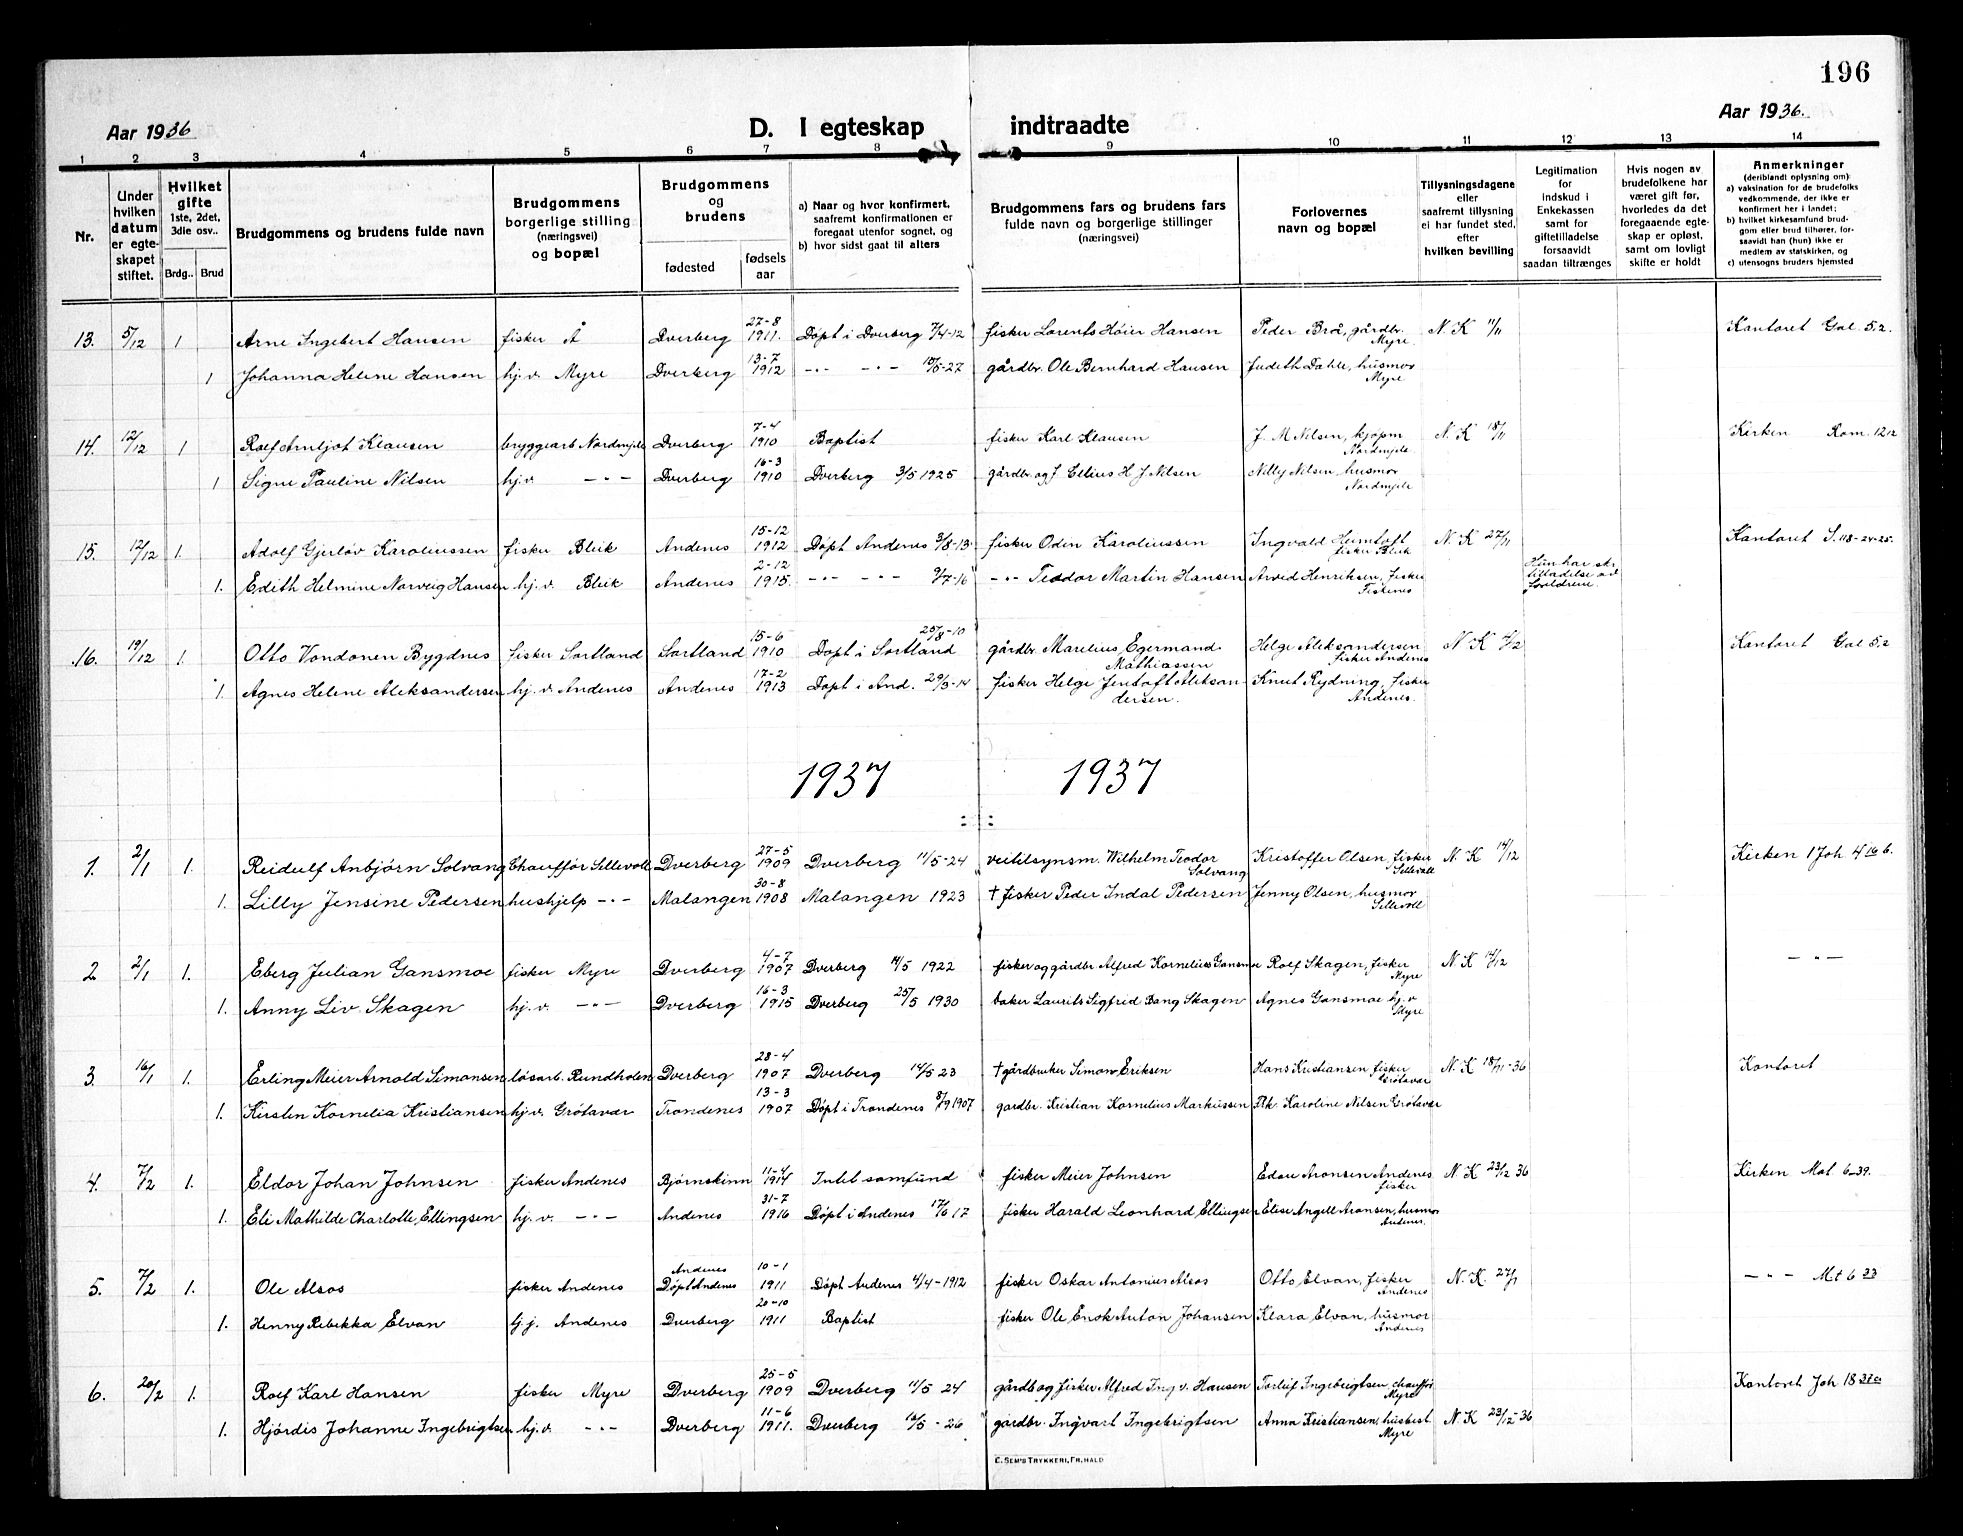 196
Aar 1936
D. I egteskap indtraadte
Aar 1936.
1 2 3 4 5 6 7 8 9 10 11 12 13 14
Nr.
Under hvilken datum er egteskapet stiftet.
Hvilket gifte 1ste, 2det, 3die osv..
Brdg.. Brud
Brudgommens og brudens fulde navn
Brudgommens borgerlige stilling (næringsvei) og bopæl
Brudgommens og brudens
fødested
fødsels aar
a) Naar og hvor konfirmert, saafremt konfirmationen er foregaat utenfor sognet, og
b) hvor sidst gaat til alters
Brudgommens fars og brudens fars fulde navn og borgerlige stillinger (næringsvei)
Forlovernes navn og bopæl
Tillysningsdagene eller saafremt tillysning ei har fundet sted, efter hvilken bevilling
Legitimation for indskud i Enkekassen samt for giftetilladelse forsaavidt saadan tiltrænges
Hvis nogen av brudefolkene har været gift før, hvorledes da det foregaaende egteskap er opløst, samt om lovligt skifte er holdt
Anmerkninger (deriblandt oplysning om):
a) vaksination for de brudefolks vedkommende, der ikke er konfirmert her i landet;
b) hvilket kirkesamfund brudgom eller brud tilhører, forsaavidt han (hun) ikke er medlem av statskirken, og
c) utensogns bruders hjemsted
13. 5/12 1 Arne Ingebert Hansen fisker Å Dverberg 27-8 1911. Døpt i Dverberg 7/4-12 fisker Lorents Høier Hansen Peder Brå, gårdbr. Myre N. K 11/11 Kantoret Gal 5.2.
1 Johanna Helene Hansen hj. v. Myre Dverberg 13-7 1912 -"- -"- 15/5-27 gårdbr. Ole Bernhard Hansen Judith Dahle, husmor Myre
14. 12/12 1 Rolf Arnljot Klausen bryggearb Nordmjele Dverberg 7-4 1910 Baptist fisker Karl Klausen J. M Nilsen, kjøpm Nordmjele N. K 18/11 Kirken Rom. 12 12
1 Signe Pauline Nilsen hj. v. -"- Dverberg 16-3 1910 Dverberg 3/5 1925 gårdbr og f. Ellius H. J Nilsen Nilly Nilsen, husmor Nordmjele
15. 12/12 1. Adolf Gjerløv Karoliussen fisker Bleik Andenes 15-12 1912 Døpt Andenes 3/8-13 fisker Oden Karoliussen Ingvald Heimtoft fisker Bleik N. K 27/11 Kantoret S. 118-24-25.
1. Edith Helmine Norveig Hansen hj. v. Bleik Andenes 2-12 1915. -"- -"- 9/7-16 -"- Teodor Martin Hansen Arvid Henriksen, fisker Fiskenes Hun har sk. tilladelse av foreldrene.
16. 19/12 1. Otto Vondonen Bygdnes fisker Sortland Sortland 15-6 1910 Døpt i Sortland 25/8-10 gårdbr Marelius Egermand Mathiassen Helge Aleksandersen fisker Andenes N. K 4/12 Kantoret Gal 5,2
1 Agnes Helene Aleksandersen hj. v. Andenes Andenes 17-2 1913 Døpt i And. 29/3-14 fisker Helge Jentoft Aleksandersen. Knut Rydning, fisker Andenes.
1937 1937
1. 2/1 1. Reidulf Anbjørn Solvang Chauffør Sellevoll Dverberg 27-5 1909 Dverberg 11/5-24 veitilsynsm. Wilhelm Teodor Solvang Kristoffer Olsen, fisker Sellevoll N. K 14/12 Kirken 1 Joh 4 16 b.
1. Lilly Jensine Pedersen hushjelp -"- Malangen 30-8 1908 Malangen 1923 † fisker Peder Indal Pedersen Jenny Olsen, husmor Sellevoll
2 2/1 1. Eberg Julian Gansmoe fisker Myre Dverberg 4-7 1907 Dverberg 14/5 1922 fisker og gårdbr Alfred Kornelius Gansmoe Rolf Skagen, fisker Myre N. K 14/12 -"-
1. Anny Liv Skagen hj. v. -"- Dverberg 16-3 1915 Dverberg 25/5 1930 baker Laurits Sigfred Bang Skagen Agnes Gansmoe hj. v Myre
3. 16/1 1. Erling Meier Arnold Simonsen løsarb. Rundholen Dverberg 28-4 1907 Dverberg 14/5 23 † gårdbruker Simon Eriksen Hans Kristiansen fisker Grøtavær N. K 18/11-36 Kantoret
1. Kirsten Kornelia Kristiansen hj. v. Grøtavær Trondenes 13-3 1907 Døpt i Trondenes 8/9 1907 gardbr. Kristian Kornelius Markussen Frk. Karoline Nilsen Grøtavær
4. 7/2 1. Eldor Johan Johnsen fisker Andenes Bjørnskinn 11-4 1914 Intet samfund fisker Meier Johnsen Edor Aronsen Andenes fisker N. K 23/12 36 Kirken Mat 6-39.
1. Eli Mathilde Charlotte, Ellingsen hj. v. -"- Andenes 31-7 1916 Døpt i Andenes 17/6 17 fisker Harald Leonhard Ellingsen Elise Angell Aronsen, husmor Andenes.
5. 7/2 1. Ole Alsos fisker Andenes Andenes Døpt Andenes 10-1 1911 Døpt Andenes 4/4-1912 fisker Oskar Antonius Alsos Otto Elvan, fisker Andenes N. K. 27/1 -"- Mt 6 33
1. Henny Rebekka Elvan hj. Andenes Dverberg 20-10 1911 Baptist fisker Ole Enok Anton Johansen Klara Elvan, husmor Andenes
6. 20/2 1. Rolf Karl Hansen fisker Myre Dverberg 25-5 1909 Dverberg 11/5 24 gårdb og fisker Alfred Ingv. Hansen Torleif Ingebrigtsen, chauffør Myre Kantoret Joh 18 37
1. Hjørdis Johanne Ingebrigtsen hj. v. -"- Dverberg 11-6 1911. Dverberg 16/5-26 gårdbr. Ingvart Ingebrigtsen Anna Kristiansen, husbest. Myre N. K 23/12-36
E. SEM'S TRYKKERI, FR. HALD